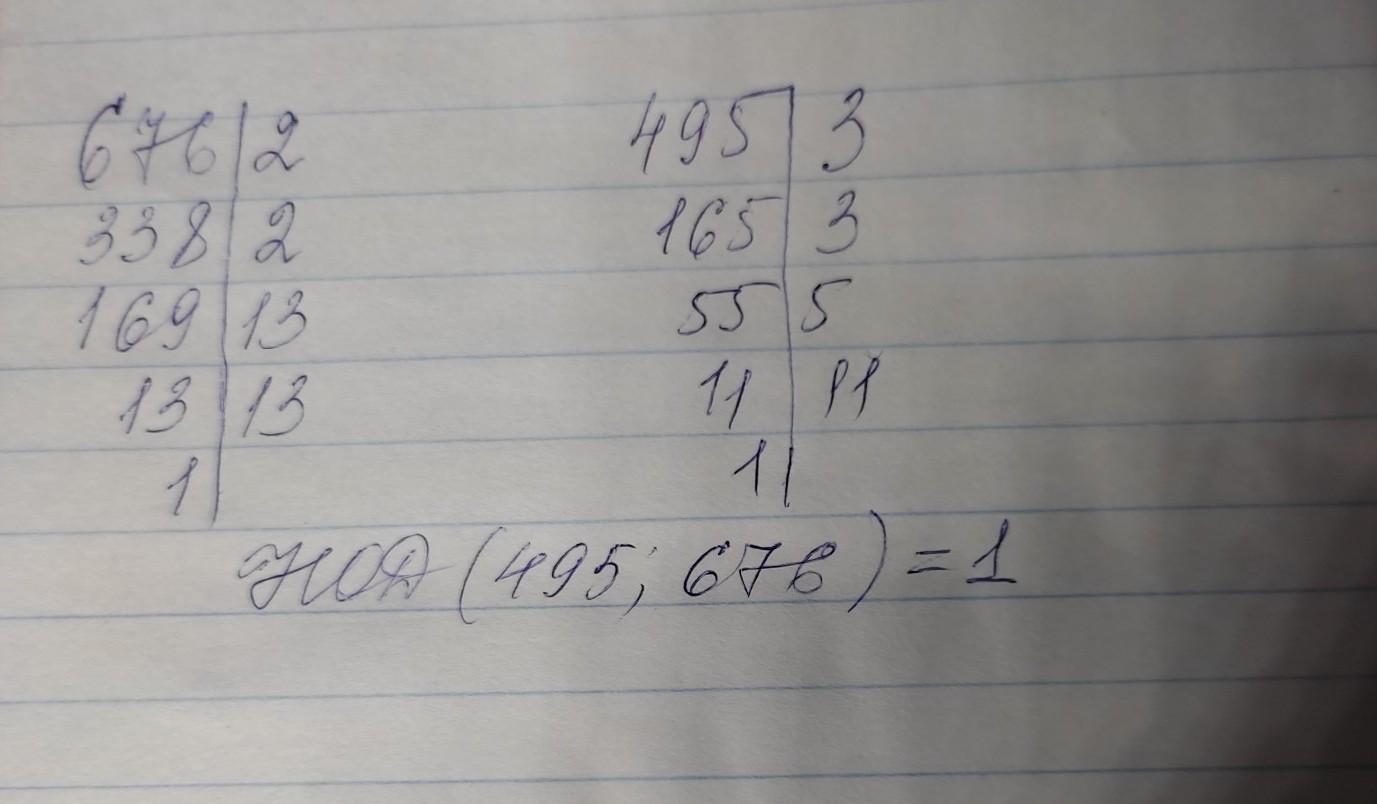 676|2 495|3
338|2 165|3
169|13 55|5
13|13 11|11
1| 1|
НОД (495; 676) = 1